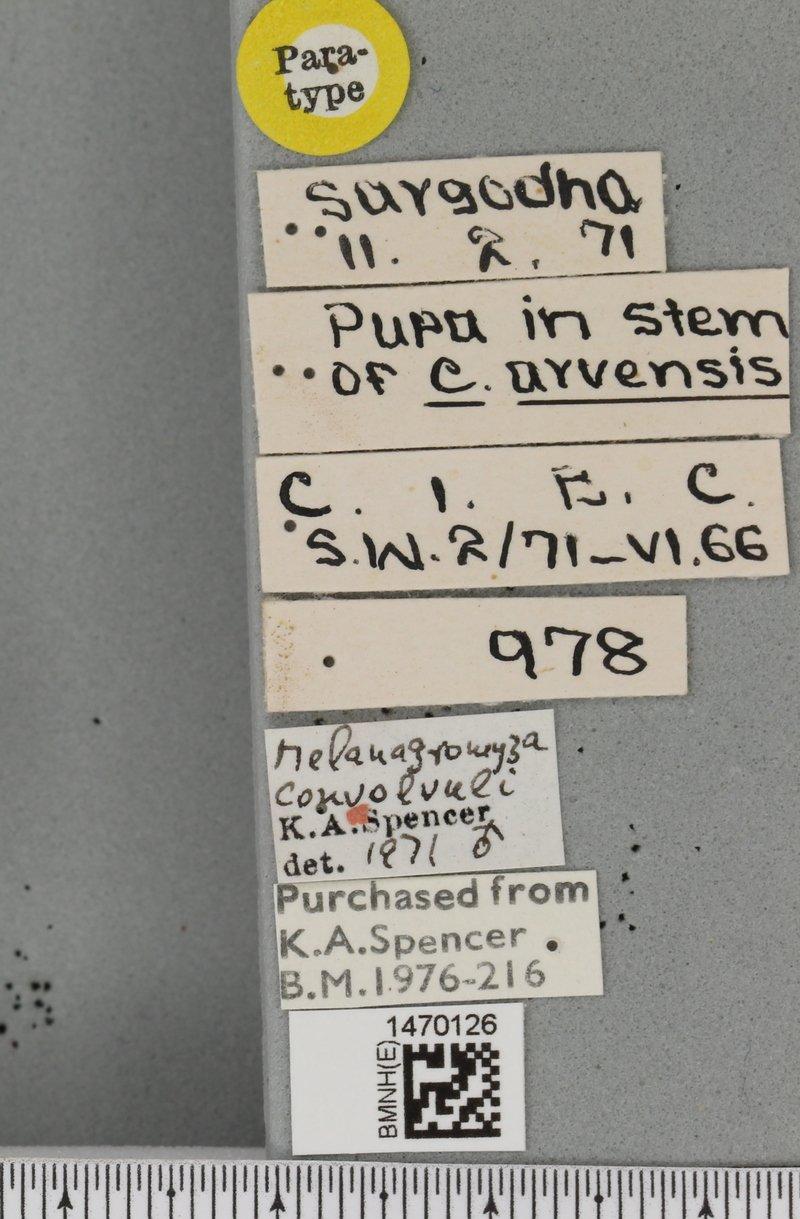 Para-
type
Sargodha
11. 2. 71
Pupa in stem
of C. arvensis
C. I. E. C.
S.W.2/71-VI.66
978
Melanagromyza
convolvuli
K.A.Spencer
det. 1971 ♂
Purchased from
K.A.Spencer
B.M.1976-216
1470126
BMNH(E)